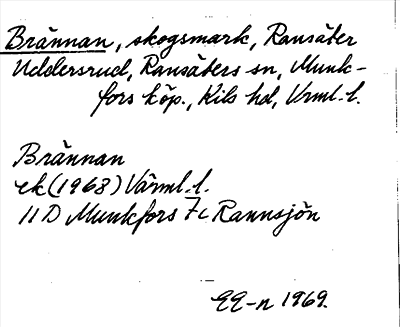 Brännan, skogsmark, Ransäter
Uddersrud, Ransäters sn, Munk-
fors köp., Kils hd, Vrml. l.
Brännan
ek (1968) Värml. l.
11 D Munkfors 7c Rannsjön
EE-n 1969.